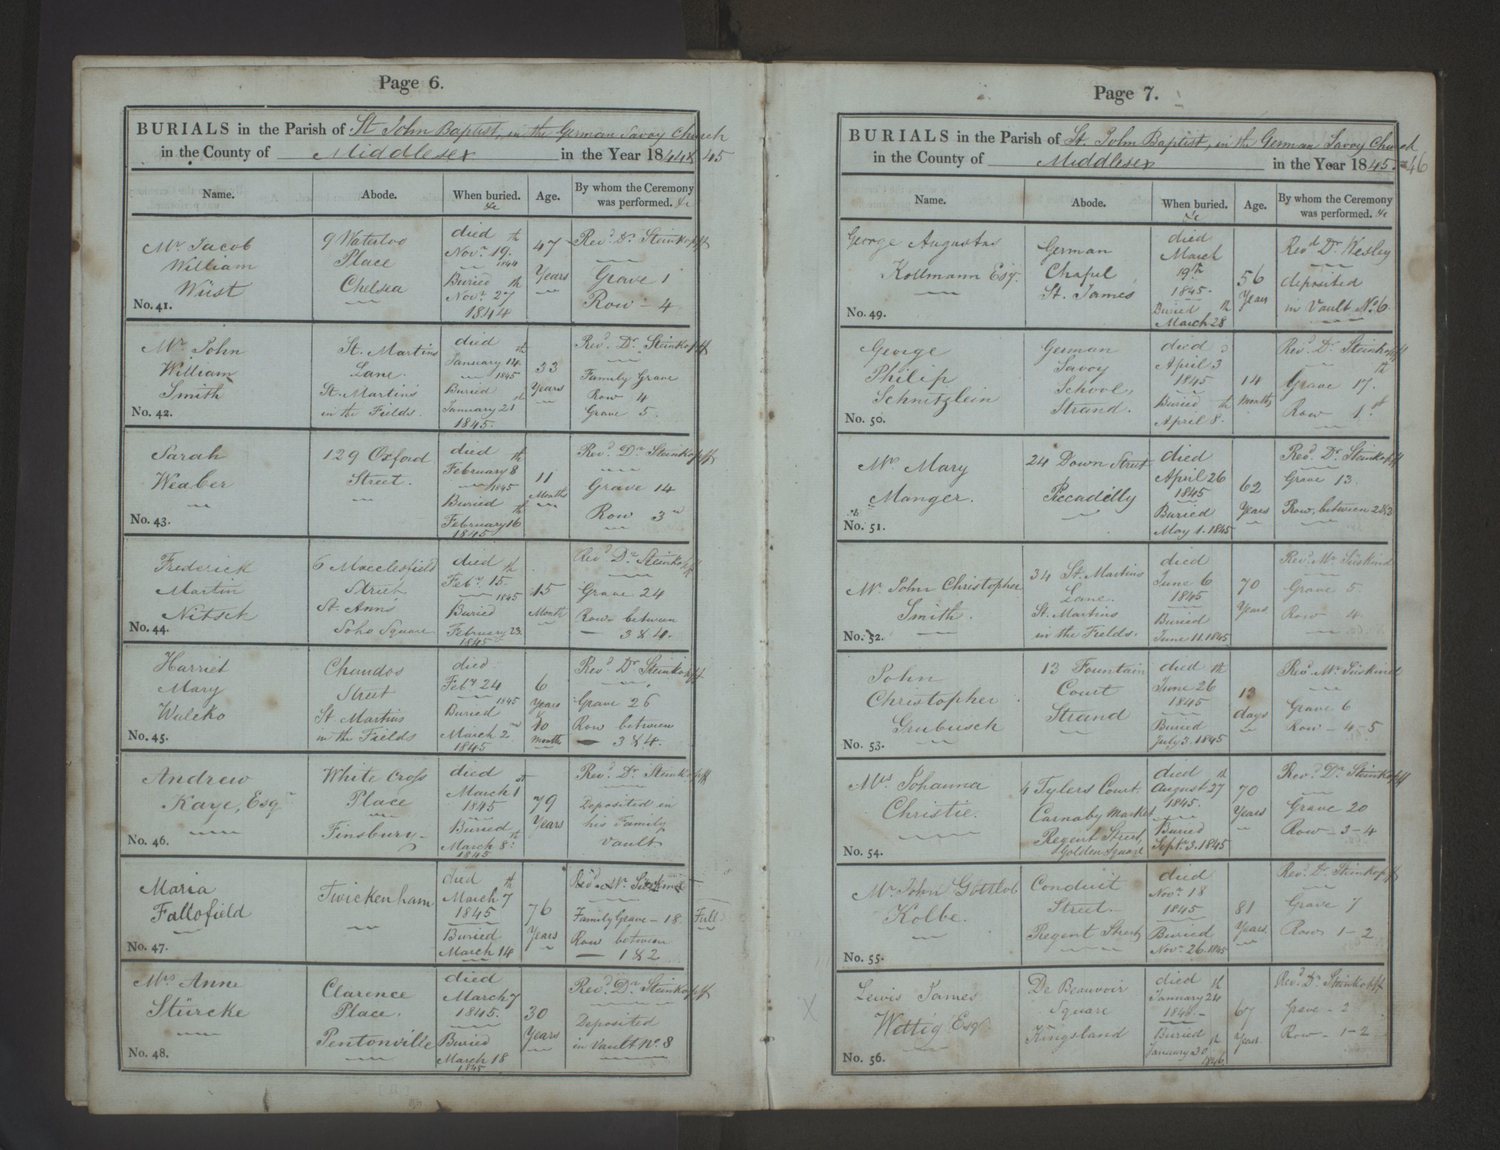 Page 6.
BURIALS in the Parish of St John Baptist, in the German Savoy Church
in the County of Middlesex in the Year 1844 & 45
Name. Abode. When buried. &c Age. By whom the Ceremony was performed. &c
Mr. Jacob
William
Wüst
No. 41.
9 Waterloo
Place
Chelsea
died
Novr. 19th
1844
Buried
Novr. 27th
1844
47
Years
Revd. Dr. Steinkopff
Grave 1
Row - 4
Mr. John
William
Smith
No. 42.
St. Martins
Lane.
St. Martin's
in the Fields.
died
January 14th
1845
Buried
January 21st
1845.
33
Years
Revd. Dr. Steinkopff
Family Grave
Row 4
Grave 5.
Sarah
Weaber
No. 43.
129 Oxford
Street.
died
February 8th
1845
Buried
February 16th
1845
11
Months
Revd. Dr. Steinkopff
Grave 14
Row 3d
Frederick
Martin
Nitsck
No. 44.
6 Macclesfield
Street
St. Anns
Soho Square
died
Feby. 15th
1845
Buried
February 23.
1845
15
Months
Revd. Dr. Steinkopff
Grave 24
Row between
3 & 4.
Harriet
Mary
Walcko
No. 45.
Chandos
Street
St Martins
in the Fields
died
Feby. 24
1845
Buried
March 2nd
1845
6
Years
&
10
months
Revd. Dr. Steinkopff
Grave 26
Row between
3 & 4.
Andrew
Kaye, Esqr
No. 46.
White Cross
Place
Finsbury
died
March 1st
1845
Buried
March 8th
1845
79
Years
Revd. Dr. Steinkopff
Deposited in
his Family
Vault
Maria
Fallofield
No. 47.
Twickenham
died
March 7th
1845
Buried
March 14
76
Years
Revd. Mr.
Family Grave - 18.
Row between
1 & 2
Full
Mrs. Anne
Stürcke
No. 48.
Clarence
Place.
Pentonville
died
March 7
1845.
Buried
March 18
1845
30
Years
Revd. Dr. Steinkopff
Deposited
in Vault No. 8
Page 7.
BURIALS in the Parish of St. John Baptist, in the German Savoy Church
in the County of Middlesex in the Year 1845. - 46
Name. Abode. When buried. &c Age. By whom the Ceremony was performed. &c
George Augustus
Kollmann Esq.
No. 49.
German
Chapel
St. James
died
March
19th
1845.
Buried
March 28th
56
Years
Revd Dr. Wesley
deposited
in Vault No. 6
George
Philip
Schnitzlein
No. 50.
German
Savoy
School,
Strand.
died
April 3
1845
Buried
April 8th
14
months
Revd. Dr. Steinkopff
Grave 17th
Row 1st
Mrs. Mary
Manger.
No. 51.
24 Down Street
Piccadilly
died
April 26
1845
Buried
May 1. 1845
62
Years
Revd. Dr. Steinkopff
Grave 13.
Row between 2&3
Mr. John Christopher
Smith.
No. 52.
34 St. Martins
Lane.
St. Martins
in the Fields.
died
June 6
1845
Buried
June 11. 1845
70
Years
Revd. Mr. Süskind
Grave 5
Row - 4
John
Christopher
Grubusch
No. 53.
13 Fountain
Court
Strand
died
June 26th
1845
Buried
July 3. 1845
13
days
Revd. Mr. Süskind
Grave 6
Row - 4-5
Mrs. Johanna
Christie.
No. 54.
4 Tylers Court
Carnaby Market
Regent Street
Golden Square
died
August 27th
1845.
Buried
Septr. 3. 1845
70
Years
Revd. Dr. Steinkopff
Grave 20
Row - 3-4
Mr. John Gottlob
Kolbe.
No. 55.
Conduit
Street
Regent Street
died
Novr. 18
1845
Buried
Novr. 26. 1845
81
Years.
Revd. Dr. Steinkopff
Grave 7
Row 1-2
Lewis James
Wettig Esqr
No. 56.
De Beauvoir
Square
Kingsland
died
January 24th
Buried
January 30th
1846
67
Years
Revd. Dr. Steinkopff
Grave - 2
Row - 1-2